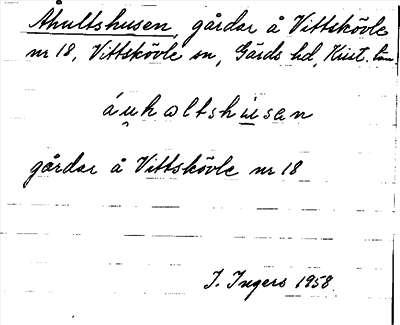 Åhultshusen, gårdar å Vittskövle
nr 18, Vittskövle sn, Gärds hd, Krist. län
áu̯hɑltshu̲sɑn
gårdar å Vittskövle nr 18
I. Ingers 1958.